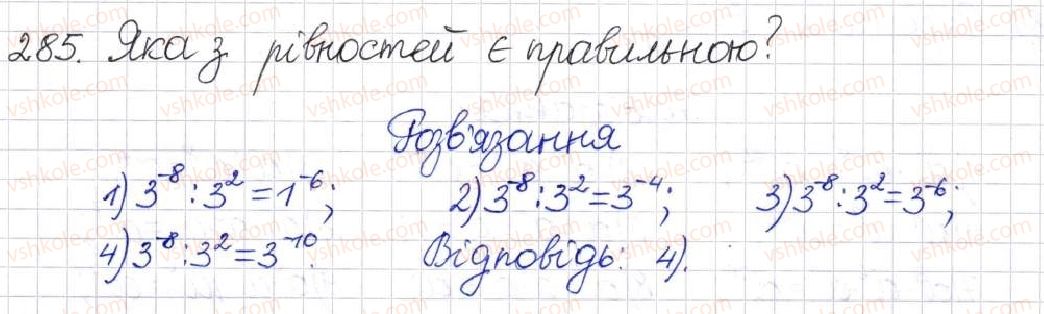 285. Яка з рівностей є правильною?
Розв'язання
1) 3⁻⁸ : 3² = 1⁻⁶; 2) 3⁻⁸ : 3² = 3⁻⁴; 3) 3⁻⁸ : 3² = 3⁻⁶;
4) 3⁻⁸ : 3² = 3⁻¹⁰. Відповідь: 4).